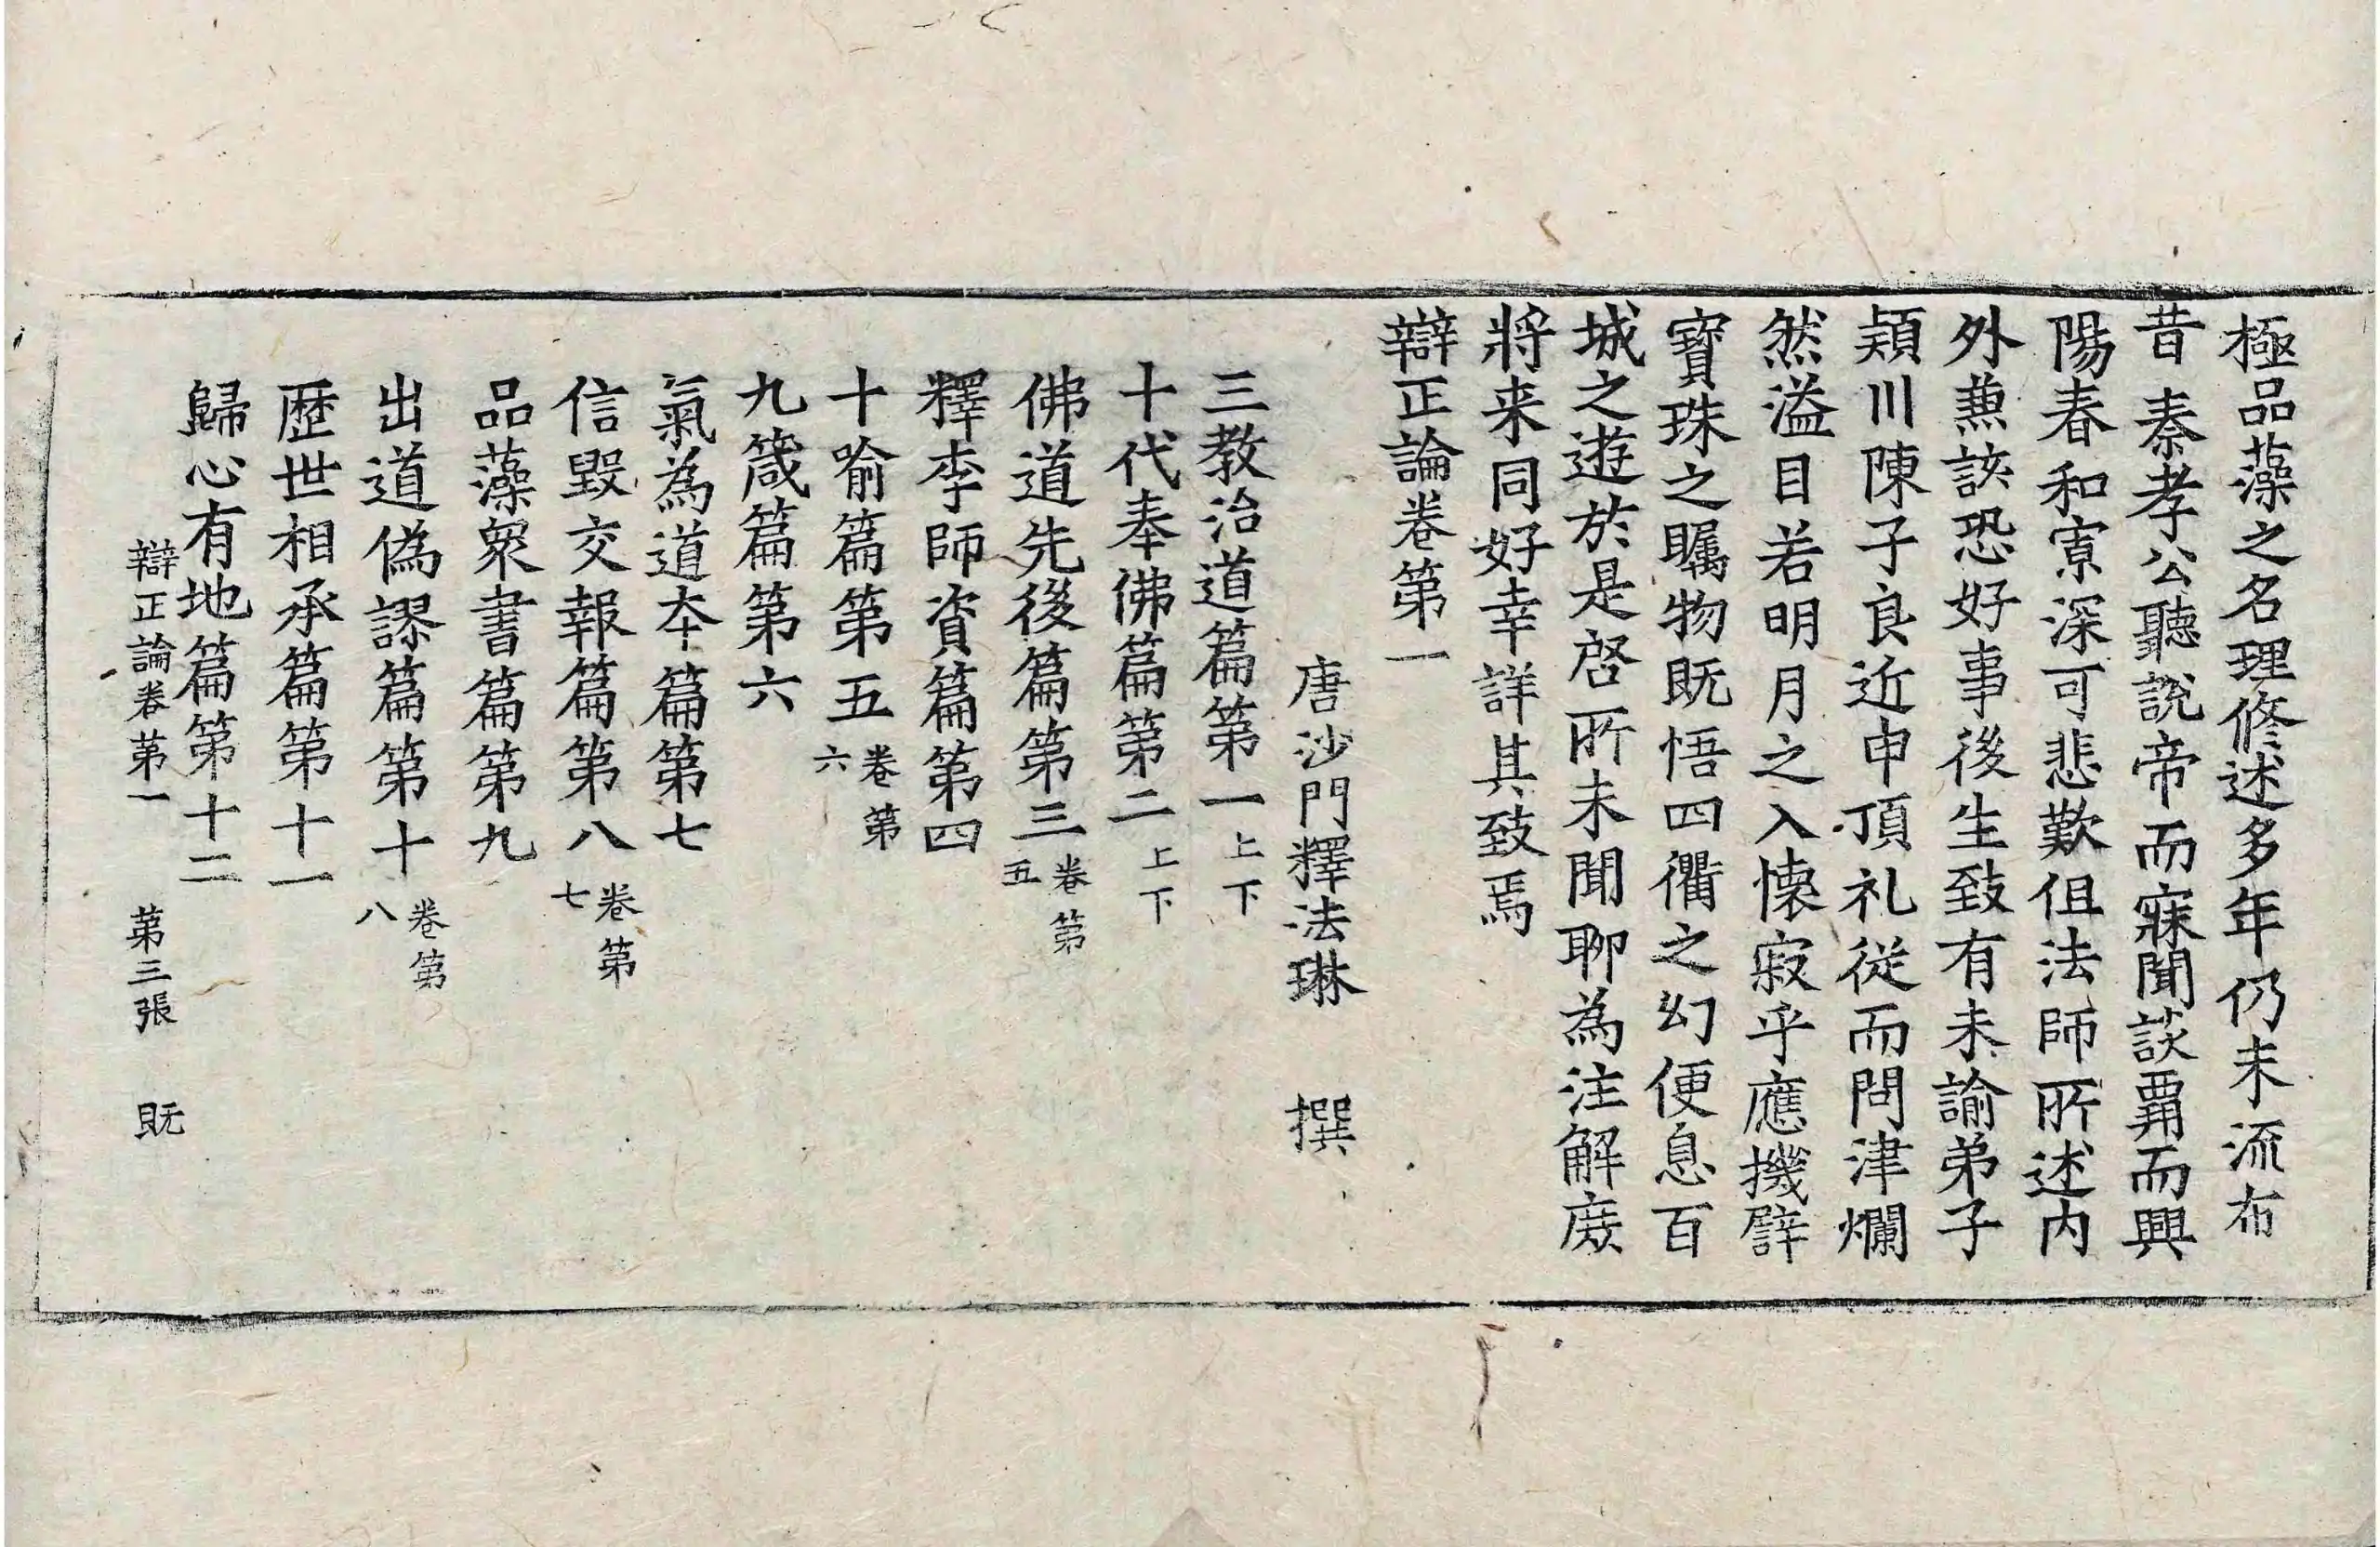 極品藻之名理修述多年仍未流布
昔秦孝公聽說帝而寐聞談霸而興
陽春和寡深可悲歎但法師所述內
外兼該恐好事後生致有未諭弟子
潁川陳子良近申頂礼從而問津爛
然溢目若明月之入懷寂乎應機譬
寶珠之矚物既悟四衢之幻便息百
城之遊於是啓所未聞聊為注解庶
將来同好幸詳其致焉
辯正論卷第一
唐沙門釋法琳 撰
三教治道篇第一上下
十代奉佛篇第二上下
佛道先後篇第三卷第五
釋李師資篇第四
十喻篇第五卷第六
九箴篇第六
氣為道本篇第七
信毀交報篇第八卷第七
品藻衆書篇第九
出道偽謬篇第十卷第八
歷世相承篇第十一
歸心有地篇第十二
辯正論卷第一 第三張 既